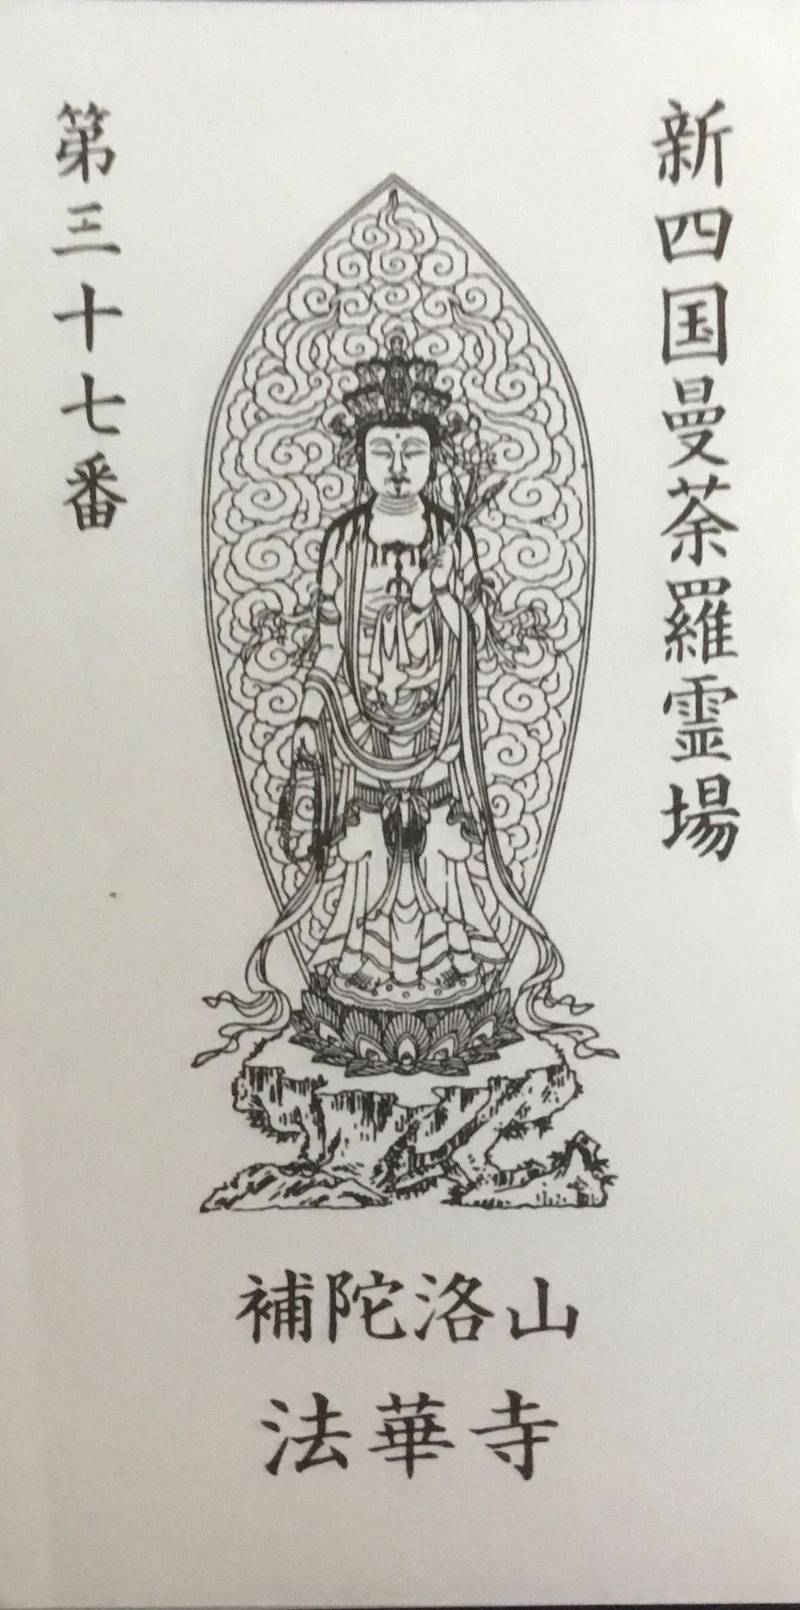 新四国曼荼羅霊場
第三十七番
補陀洛山
法華寺